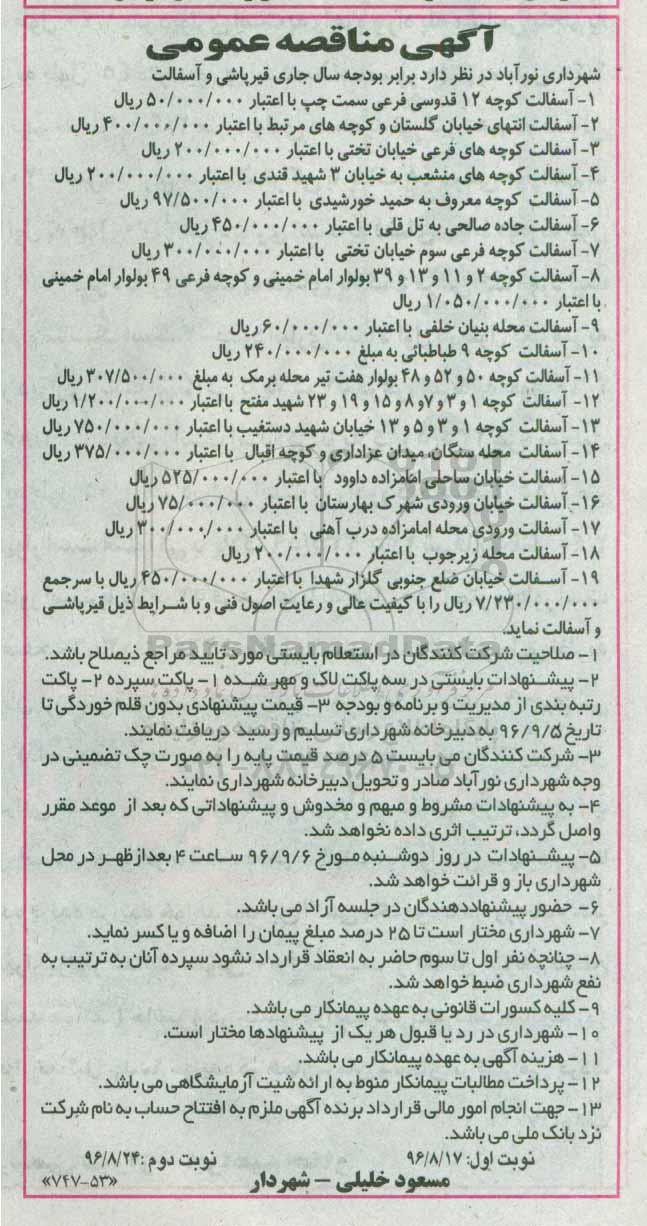 آگهی مناقصه عمومی
شهرداری نورآباد در نظر دارد برابر بودجه سال جاری قیرپاشی و آسفالت
۱- آسفالت کوچه ۱۲ قدوسی فرعی سمت چپ با اعتبار ۵۰/۰۰۰/۰۰۰ ریال
۲- آسفالت انتهای خیابان گلستان و کوچه های مرتبط با اعتبار ۴۰۰/۰۰۰/۰۰۰ ریال
۳- آسفالت کوچه های فرعی خیابان تختی با اعتبار ۲۰۰/۰۰۰/۰۰۰ ریال
۴- آسفالت کوچه های منشعب به خیابان ۳ شهید قندی با اعتبار ۲۰۰/۰۰۰/۰۰۰ ریال
۵- آسفالت کوچه معروف به حمید خورشیدی با اعتبار ۹۷/۵۰۰/۰۰۰ ریال
۶- آسفالت جاده صالحی به تل قلی با اعتبار ۴۵۰/۰۰۰/۰۰۰ ریال
۷- آسفالت کوچه فرعی سوم خیابان تختی با اعتبار ۳۰۰/۰۰۰/۰۰۰ ریال
۸- آسفالت کوچه ۲ و ۱۱ و ۱۳ و ۳۹ بولوار امام خمینی و کوچه فرعی ۴۹ بولوار امام خمینی
با اعتبار ۱/۰۵۰/۰۰۰/۰۰۰ ریال
۹- آسفالت محله بنیان خلفی با اعتبار ۶۰/۰۰۰/۰۰۰ ریال
۱۰- آسفالت کوچه ۹ طباطبائی به مبلغ ۲۴۰/۰۰۰/۰۰۰ ریال
۱۱- آسفالت کوچه ۵۰ و ۵۲ و ۴۸ بولوار هفت تیر محله برمک به مبلغ ۳۰۷/۵۰۰/۰۰۰ ریال
۱۲- آسفالت کوچه ۱ و ۳ و ۷و ۸ و ۱۵ و ۱۹ و ۲۳ شهید مفتح با اعتبار ۱/۲۰۰/۰۰۰/۰۰۰ ریال
۱۳- آسفالت کوچه ۱ و ۳ و ۵ و ۱۳ خیابان شهید دستغیب با اعتبار ۷۵۰/۰۰۰/۰۰۰ ریال
۱۴- آسفالت محله سنگان، میدان عزاداری و کوچه اقبال با اعتبار ۳۷۵/۰۰۰/۰۰۰ ریال
۱۵- آسفالت خیابان ساحلی امامزاده داوود با اعتبار ۵۲۵/۰۰۰/۰۰۰ ریال
۱۶- آسفالت خیابان ورودی شهرک بهارستان با اعتبار ۷۵/۰۰۰/۰۰۰ ریال
۱۷- آسفالت ورودی محله امامزاده درب آهنی با اعتبار ۳۰۰/۰۰۰/۰۰۰ ریال
۱۸- آسفالت محله زیرجوب با اعتبار ۲۰۰/۰۰۰/۰۰۰ ریال
۱۹- آسفالت خیابان ضلع جنوبی گلزار شهدا با اعتبار ۴۵۰/۰۰۰/۰۰۰ ریال با سرجمع
۷/۲۳۰/۰۰۰/۰۰۰ ریال را با کیفیت عالی و رعایت اصول فنی و با شرایط ذیل قیرپاشی
و آسفالت نماید.
ParsNamadData
۱- صلاحیت شرکت کنندگان در استعلام بایستی مورد تایید مراجع ذیصلاح باشد.
۲- پیشنهادات بایستی در سه پاکت لاک و مهر شده ۱- پاکت سپرده ۲- پاکت
رتبه بندی از مدیریت و برنامه و بودجه ۳- قیمت پیشنهادی بدون قلم خوردگی تا
تاریخ ۹۶/۹/۵ به دبیرخانه شهرداری تسلیم و رسید دریافت نمایند.
۳- شرکت کنندگان می بایست ۵ درصد قیمت پایه را به صورت چک تضمینی در
وجه شهرداری نورآباد صادر و تحویل دبیرخانه شهرداری نمایند.
۴- به پیشنهادات مشروط و مبهم و مخدوش و پیشنهاداتی که بعد از موعد مقرر
واصل گردد، ترتیب اثری داده نخواهد شد.
۵- پیشنهادات در روز دوشنبه مورخ ۹۶/۹/۶ ساعت ۴ بعدازظهر در محل
شهرداری باز و قرائت خواهد شد.
۶- حضور پیشنهاددهندگان در جلسه آزاد می باشد.
۷- شهرداری مختار است تا ۲۵ درصد مبلغ پیمان را اضافه و یا کسر نماید.
۸- چنانچه نفر اول تا سوم حاضر به انعقاد قرارداد نشود سپرده آنان به ترتیب به
نفع شهرداری ضبط خواهد شد.
۹- کلیه کسورات قانونی به عهده پیمانکار می باشد.
۱۰- شهرداری در رد یا قبول هر یک از پیشنهادها مختار است.
۱۱- هزینه آگهی به عهده پیمانکار می باشد.
۱۲- پرداخت مطالبات پیمانکار منوط به ارائه شیت آزمایشگاهی می باشد.
۱۳- جهت انجام امور مالی قرارداد برنده آگهی ملزم به افتتاح حساب به نام شرکت
نزد بانک ملی می باشد.
نوبت اول: ۹۶/۸/۱۷ نوبت دوم :۹۶/۸/۲۴
مسعود خلیلی - شهردار «۷۴۷-۵۳»